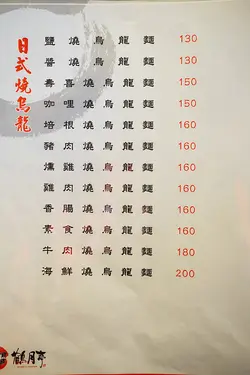 日式燒烏龍
鹽燒烏龍麵 130
醬燒烏龍麵 130
壽喜燒烏龍麵 150
咖哩燒烏龍麵 150
培根燒烏龍麵 160
豬肉燒烏龍麵 160
燻雞燒烏龍麵 160
雞肉燒烏龍麵 160
香腸燒烏龍麵 160
素食燒烏龍麵 160
牛肉燒烏龍麵 180
海鮮燒烏龍麵 200
月亭